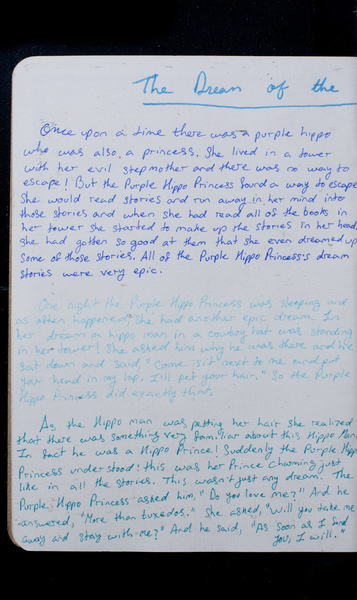 The Dream of the
Once upon a time there was a purple hippo
who was also a princess. She lived in a tower
with her evil stepmother and there was no way to
escape! But the Purple Hippo Princess found a way to escape
She would read stories and run away in her mind into
those stories and when she had read all of the books in
her tower she started to make up the stories in her head
She had gotten so good at them that she even dreamed up
some of those stories. All of the Purple Hippo Princess's dream
stories were very epic.
One night the Purple Hippo Princess was sleeping and
as often happened, she had another epic dream. In
her dream a hippo man in a cowboy hat was standing
in her tower! She asked him why he was there and he
sat down and said, "Come sit next to me and put
your head in my lap. I'll pet your hair." So the Purple
Hippo Princess did exactly that.
As the Hippo man was petting her hair she realized
that there was something very familiar about this Hippo Man.
In fact he was a Hippo Prince! Suddenly the Purple Hippo
Princess understood: this was her Prince Charming just
like in all the stories. This wasn't just any dream. The
Purple Hippo Princess asked him, "Do you love me?" And he
answered, "More than tuxedos." She asked, "Will you take me
away and stay with me?" And he said, "As soon as I find
you, I will."